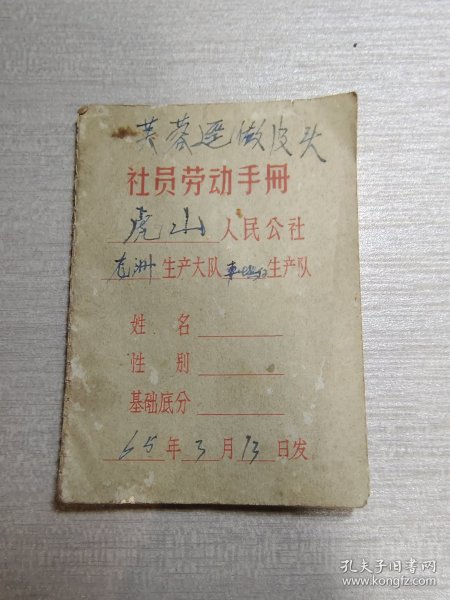 芙蓉莲做皮头
社员劳动手册
虎山人民公社
龙洲生产大队 生产队
姓名
性别
基础底分
65年3月13日发
孔夫子旧书网
www.kongfz.com